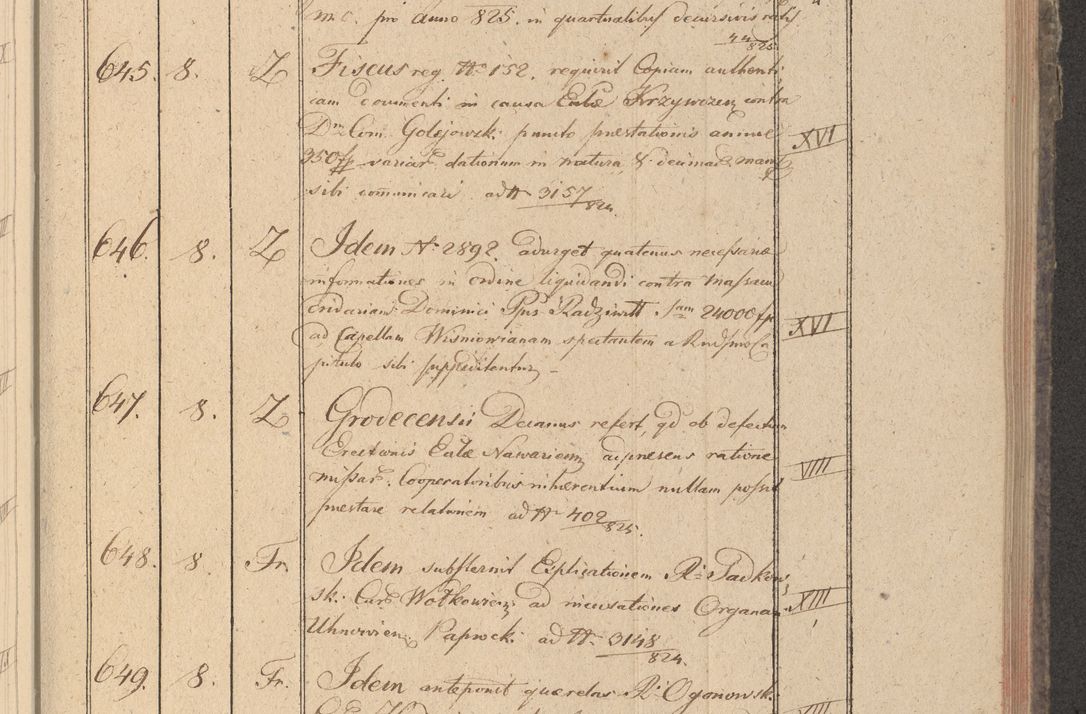 m. c. pro anno 825. in quartualibus decursivis ratis
44/825.
645. 8. Z Fiscus reg. No 152. requirit Copiam authenti
cam documenti in causa Eccłae Krzywczen. contra
Dnm Com. Golejowsk. puncto praestationis annuae
XVI
350 fr. variar. dationum in natura, & decimae
sibi communicari ad N 3157/824.
646. 8. Z Idem N. 2892. adurget quatenus necessariae
informationes in ordine liquidandi contra massam
cridariam Dominici Pps Radziwill Sam 24000 fr
XVI
ad Capellam Wisniowianam spectantem a Rndssmo Ca
pitulo sibi suppeditentur
647. 8. Z Grodecensis Decanus refert, qd ob defectum
Erectionis Eccłae Nawarien. ad praesens ratione
VIIII
missar. Cooperatoribus inhaerentium nullam possit
praestare relationem ad N 402/825.
648. 8. Fr. Idem substernit Explicationem R. Sadkow
sk. Cur. Wołkowien. ad incusationes Organar.
XIII
Uhnovien. Paprock. ad N. 3148/824.
649. 8. Fr. Idem anteponit querelas R. Ogonowsk.